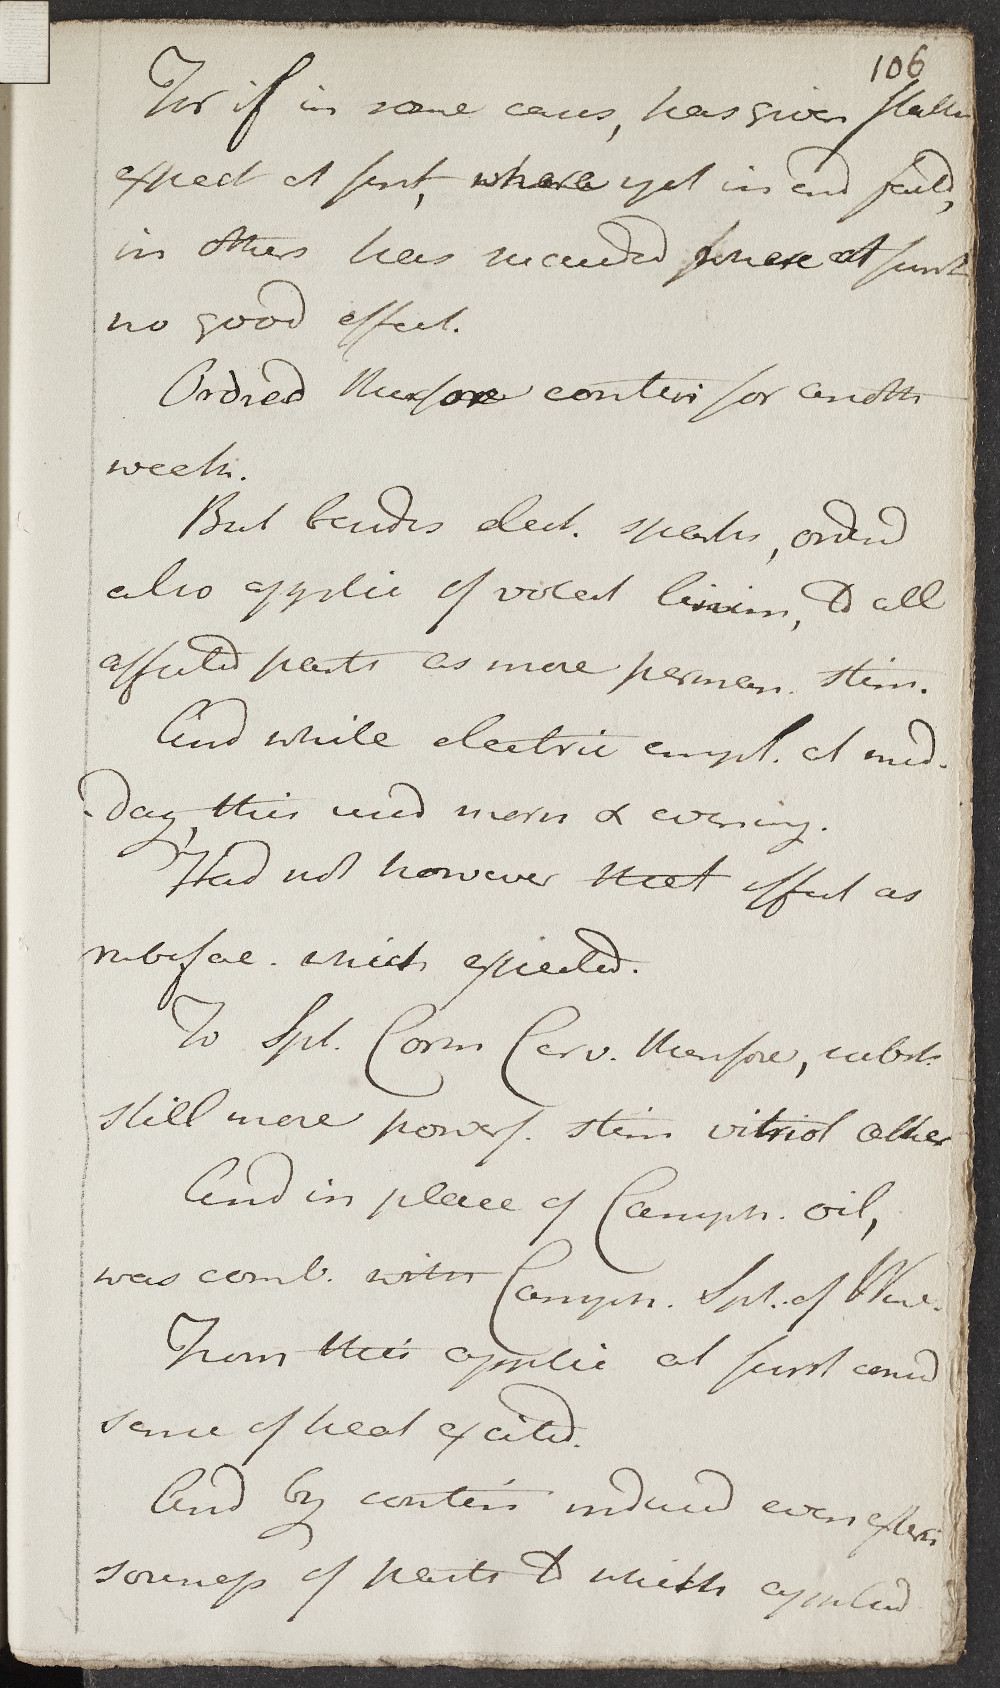 106
For if in some cases, has given flatter
expect at first, where yet in end faild,
in others has succeeded where at first
no good effect.
Ordred therefore contin for anoth
week.
But besides elect. sparks, orderd
also applic of volat linim, to all
affected parts as more perman. stim.
And while electric empl. at mid-
day, this used morn & evening.
Had not however that effect as
rubefac. which expected.
To Spt. Corn Cerv. therefore, subst.
still more powerf. stim vitriol æther
And in place of Camph. oil,
was comb. with Camph. Spt. of Wine.
From this applic at first consid
sense of heat excited.
And by contin induced even
soreness of parts to which applied